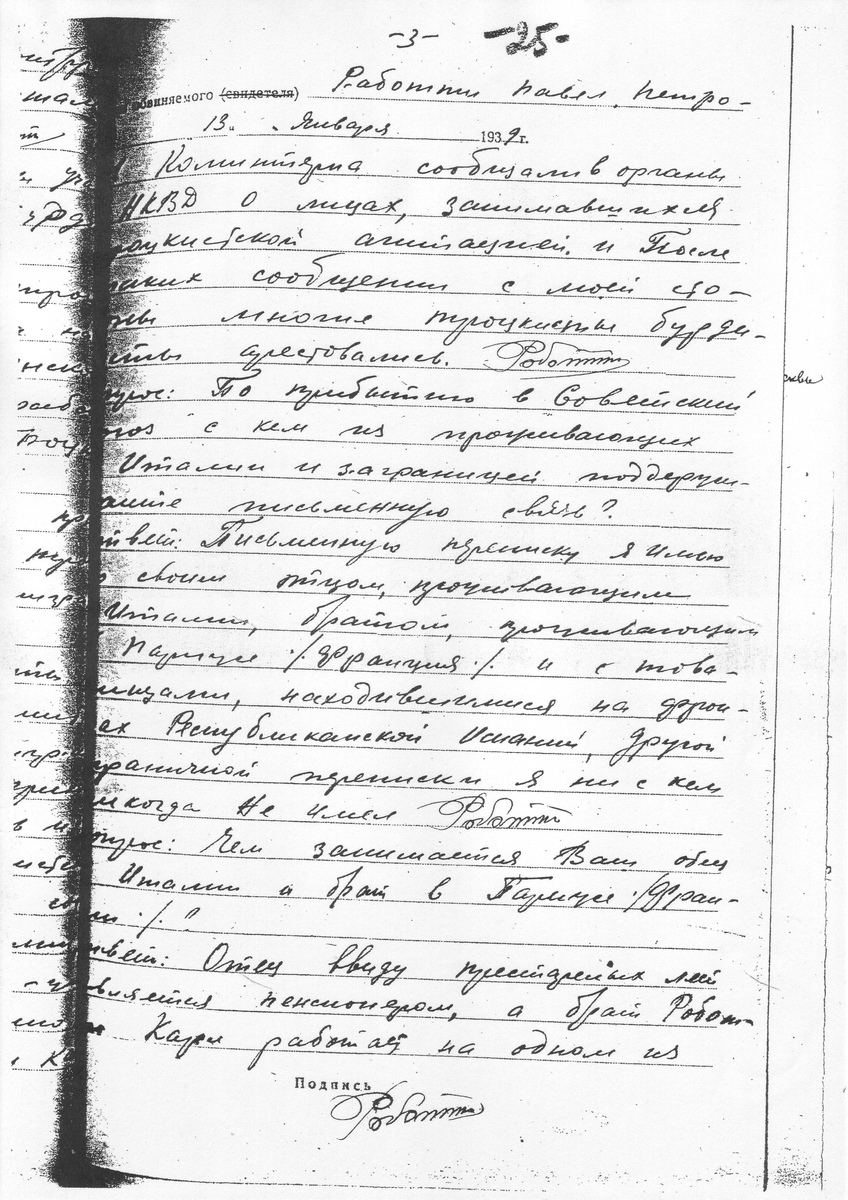 -3- -25-
обвиняемого (свидетеля) Работти Павел Петро-
13 Января 1939 г.
Коминтерна сообщали в органы
НКВД о лицах, занимавшихся
роцкистской агитацией. и После
таких сообщении с моей сто-
ны многие троцкисты бурди-
арестовались. Роботти
прос: По прибытию в Советский
юз с кем из проживающих
Италии и заграницей поддержи-
ваите письменную связь?
твет: Письменную переписку я имею
своим отцом, проживающим
Италии, братом, проживающим
Париже /Франция/ и с това-
рищами, находившимися на фрон-
ах Республиканской Испании, другой
граничной переписки я ни с кем
икогда не имел Роботти
опрос: Чем занимается Ваш отец
Италии и брат в Париже /Фран-
ции/?
твет: Отец ввиду престарелых лет
является пенсионером, а брат Робот-
Карл работает на одном из
Подпись
Роботти